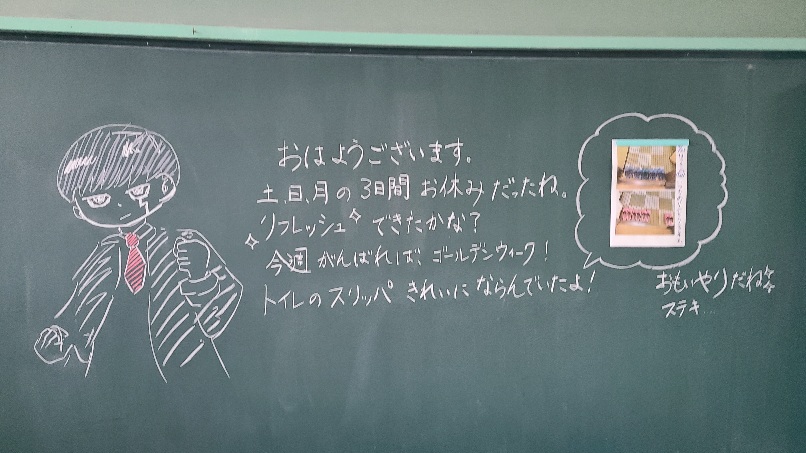 おはようございます。
土、日、月の3日間お休みだったね。
リフレッシュできたかな？
今週がんばれば、ゴールデンウィーク！
トイレのスリッパきれいにならんでいたよ！
おもいやりだね
ステキ…